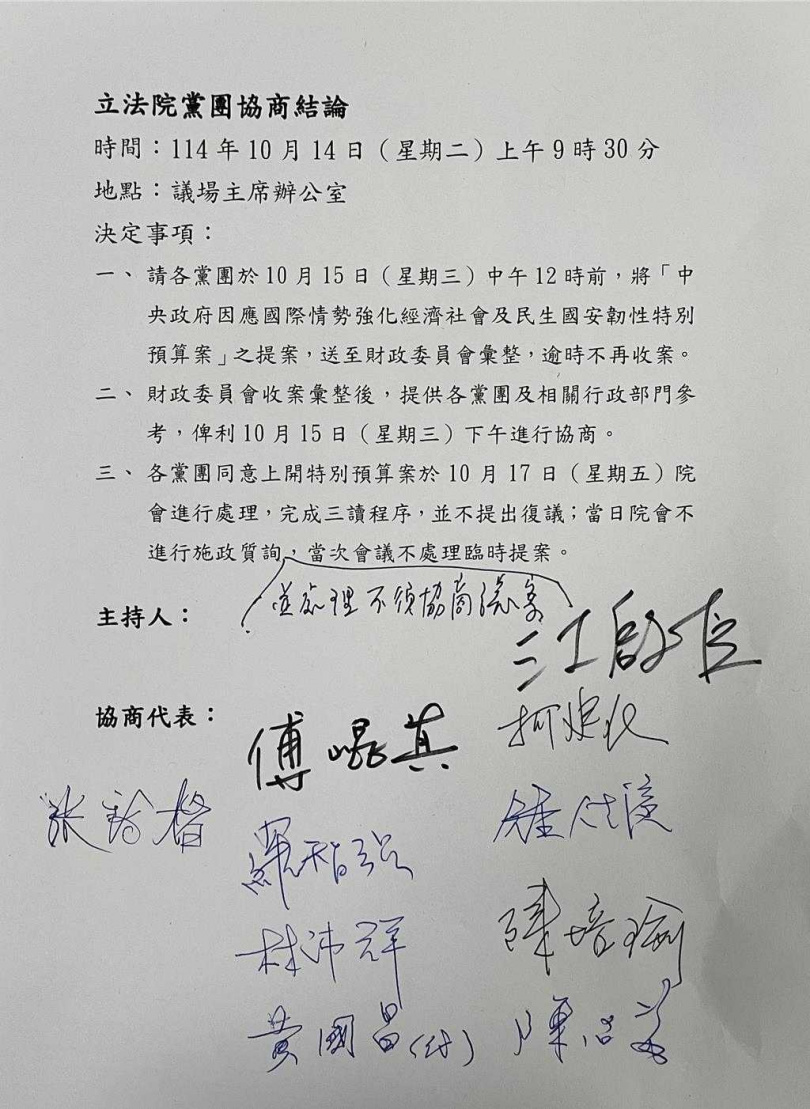 立法院黨團協商結論
時間：114年10月14日（星期二）上午9時30分
地點：議場主席辦公室
決定事項：
一、請各黨團於10月15日（星期三）中午12時前，將「中
央政府因應國際情勢強化經濟社會及民生國安韌性特別
預算案」之提案，送至財政委員會彙整，逾時不再收案。
二、財政委員會收案彙整後，提供各黨團及相關行政部門參
考，俾利10月15日（星期三）下午進行協商。
三、各黨團同意上開特別預算案於10月17日（星期五）院
會進行處理，完成三讀程序，並不提出復議；當日院會不
進行施政質詢，當次會議不處理臨時提案。
並處理不須協商議案
主持人：
江啟臣
協商代表：
傅崐萁
柯建銘
張啓楷
鍾佳濱
羅智強
陳培瑜
林沛祥
黃國昌（代）